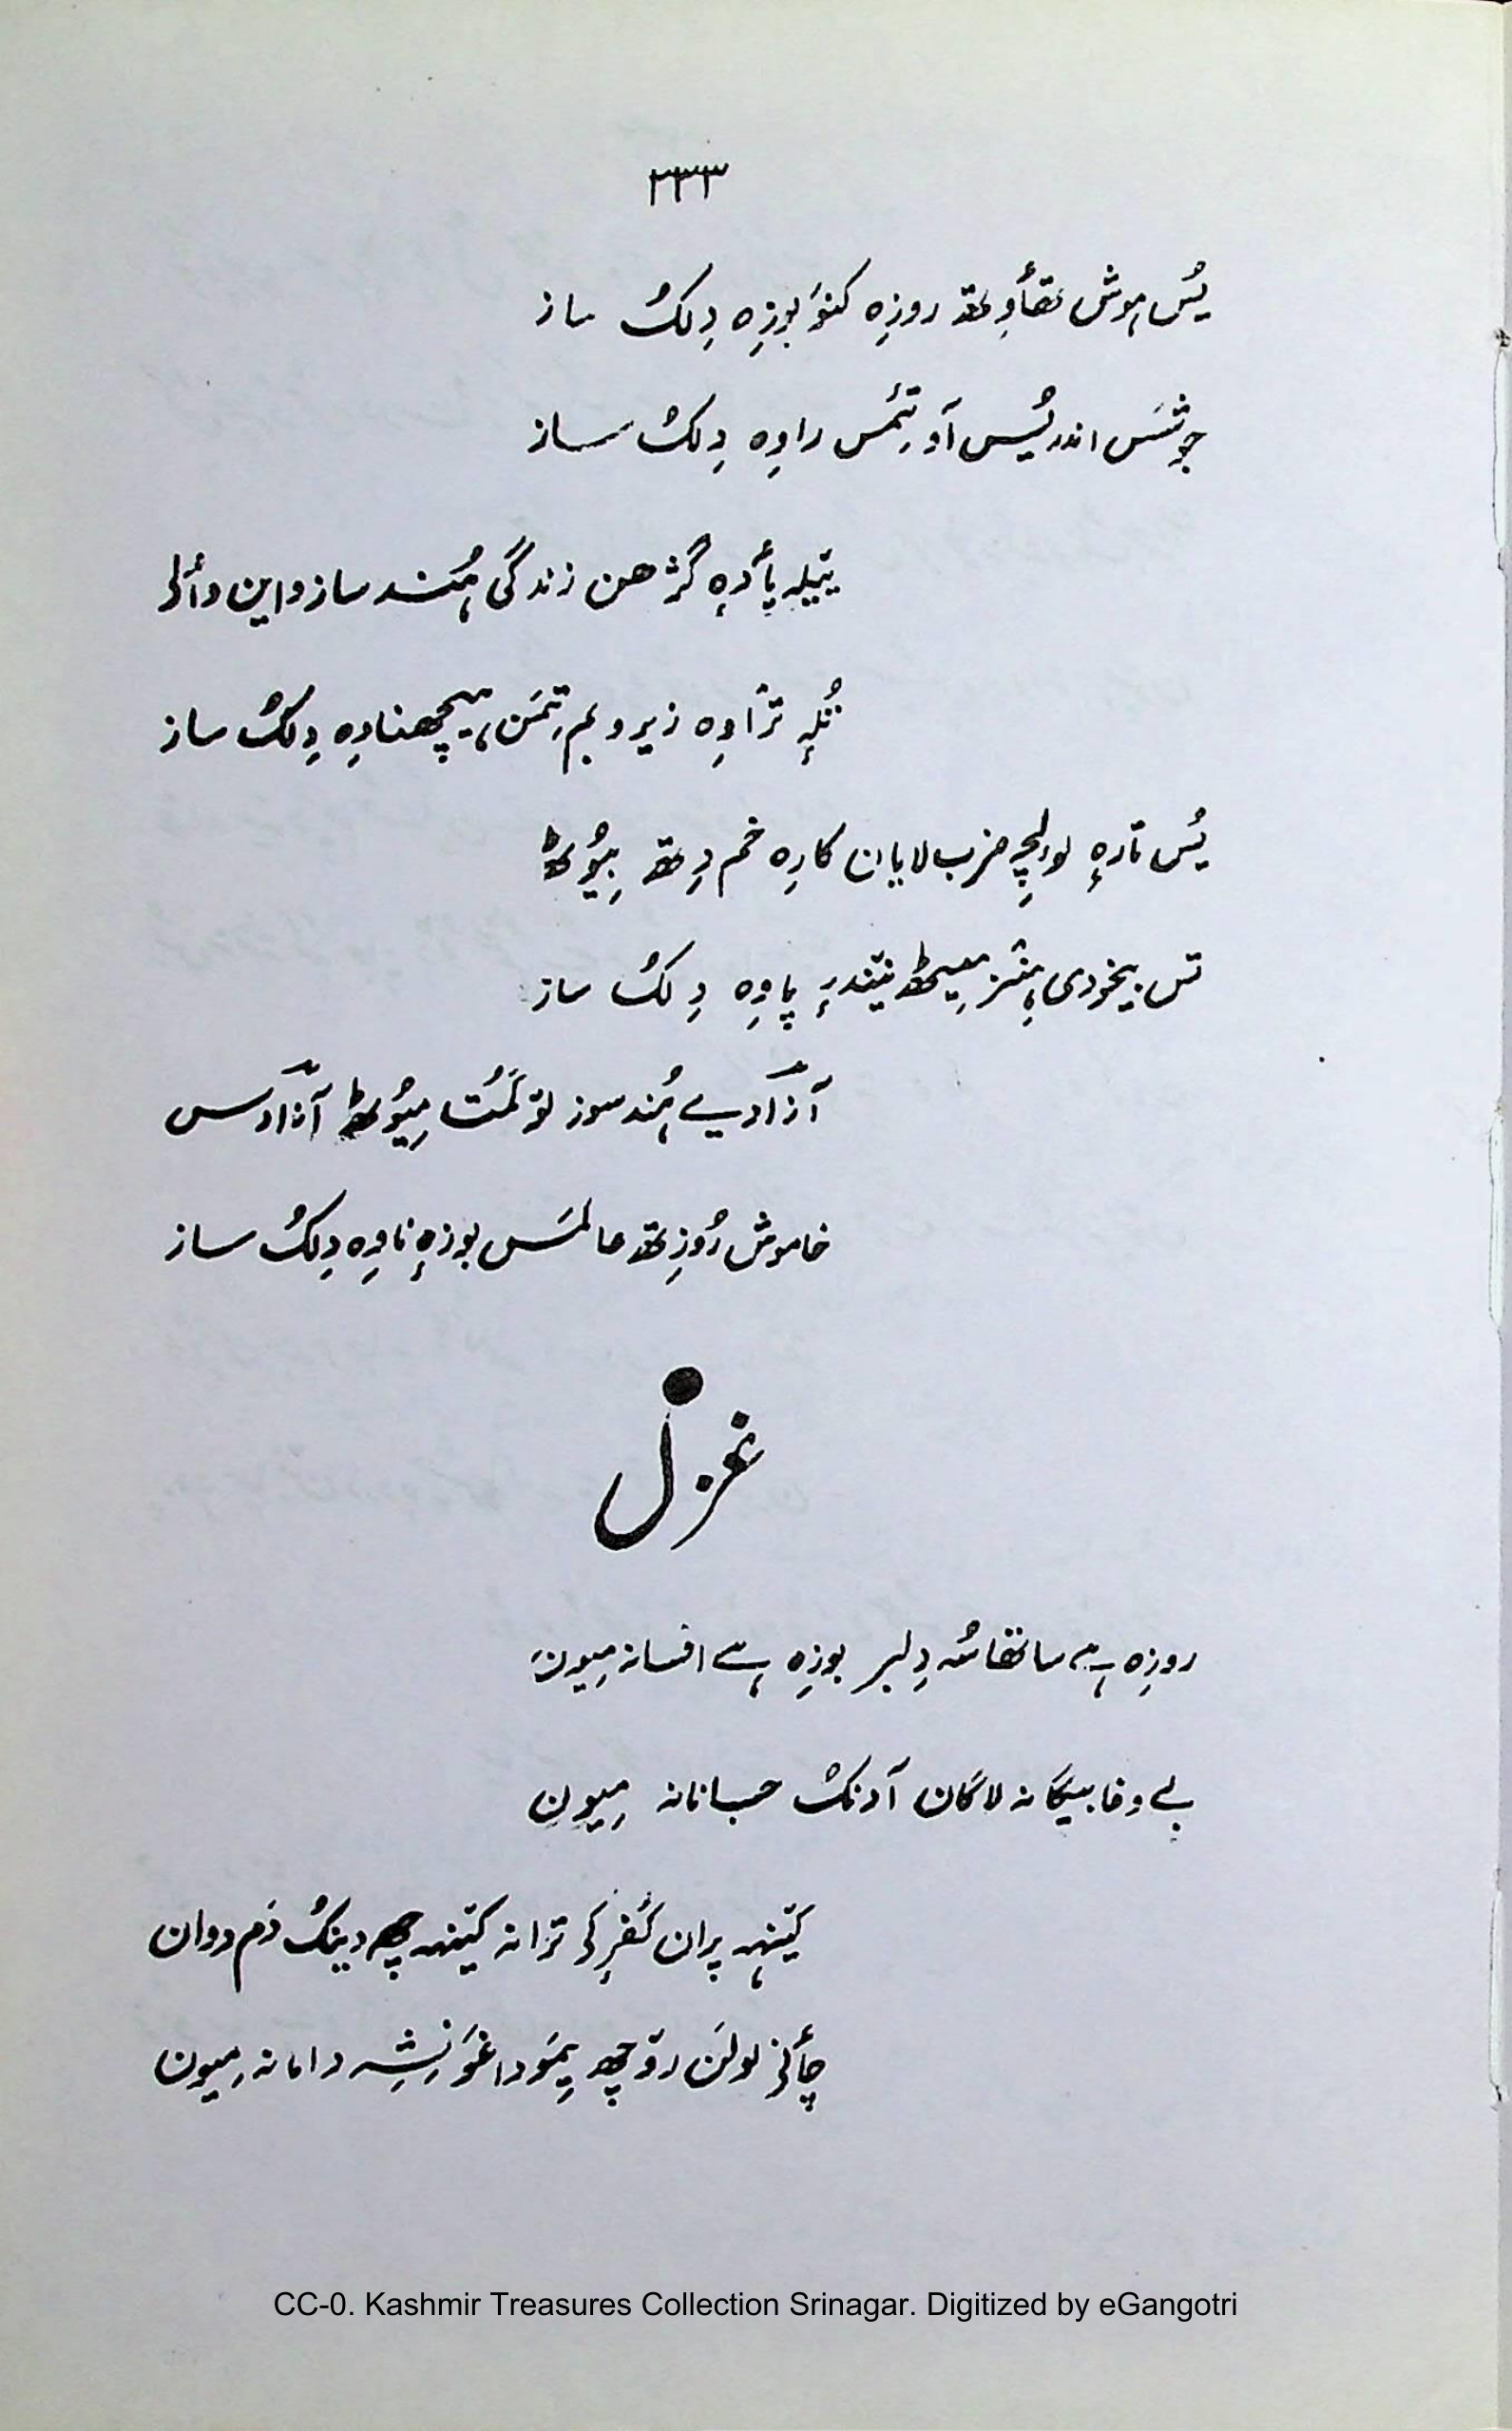 ۲۳۳
یُس ہوش تھٲوِتھ روزِہ کنَو بوزِہ دِلُک ساز
جوشَس اندر یُس آو تِمُس راوِہ دِلُک ساز
ییٚلہِ پٲدٕہ گژھن زندگی ہُند ساز واین وٲلی
تُلہٕ تراوِہ زیر و بم تِمَن ہیچھناوِہ دِلُک ساز
یُس تارٕہ لولچِہ ضرب لایان کارِہ خم دِتھ بِیوٗٹھ
تس بیخودی ہِنْز مِیٹھ نیٚندرٕ پاوِہ دِلُک ساز
آزادیے ہُند سوز توٚلمُت مِیوٗٹھ آزادس
خاموش رُوزِتھ عالمَس بوزٕہ ناوِہ دِلُک ساز
غزل
روزِہ ہے ساتھاہ دِلبر بوزِہ ہے افسانہ مِیون
بے وفا بیگانہ لاگان آدنُک جانانہ مِیون
کیٚنہہ پران کُفرٕکی ترانہ کیٚنہہ چھِ دینُک دَم دوان
چٲنی لولَن روٚچھ یِمَو داغَو نِشِہ دامانہ مِیون
CC-0. Kashmir Treasures Collection Srinagar. Digitized by eGangotri